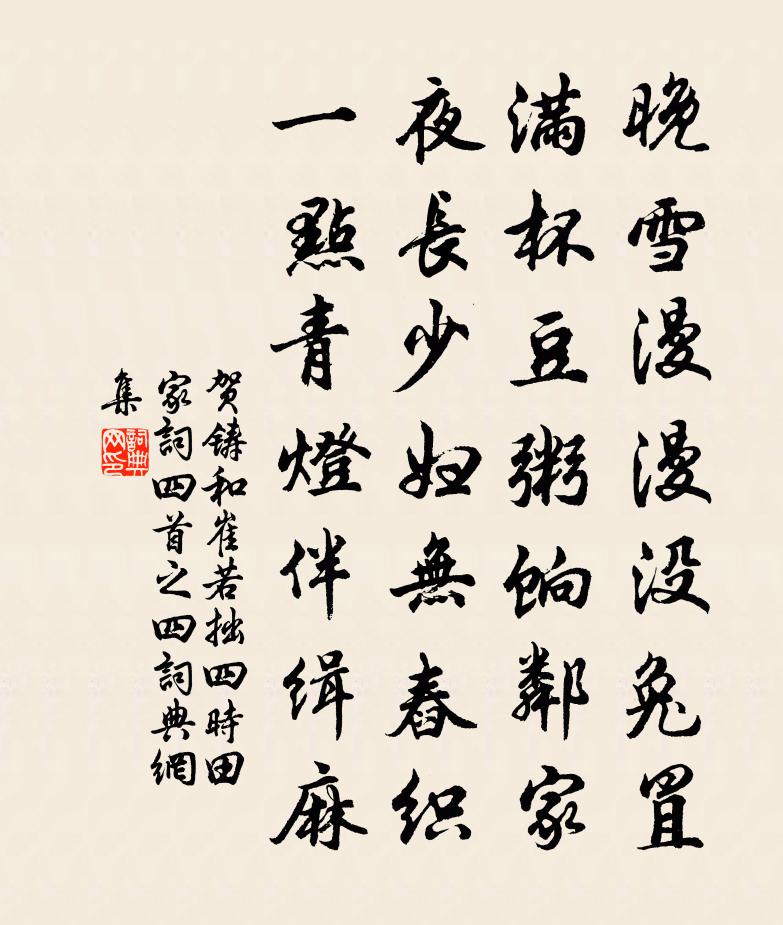 晚雪漫漫没兔罝
满杯豆粥餉鄰家
夜長少妇無舂织
一點青燈伴缉麻
贺鑄和崔若拙四時田
家詞四首之四詞典網
集
詞典
网印